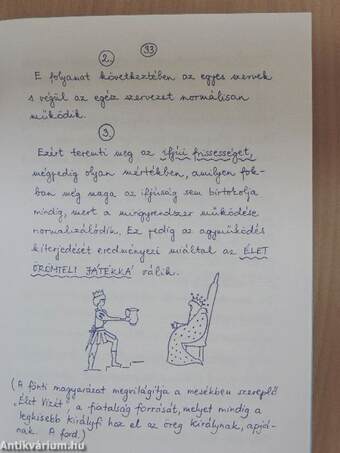 33
2.
E folyamat következtében az egyes szervek
s végül az egész szervezet normálisan
működik.
3.
Ezért teremti meg az ifjúi frissességet,
mégpedig olyan mértékben, amilyen fok-
ban még maga az ifjúság sem birtokolja
mindig, mert a mirigyrendszer működése
normalizálódik. Ez pedig az agyműködés
kiterjedését eredményezi miáltal az ÉLET
ÖRÖMTELI JÁTÉKKÁ válik.
(A fönti magyarázat megvilágítja a mesékben szereplő
"Élet Vizét" a fiatalság forrását, melyet mindig a
legkisebb királyfi hoz el az öreg királynak, apjá-
nak. A ford.)
Antikvárium.hu